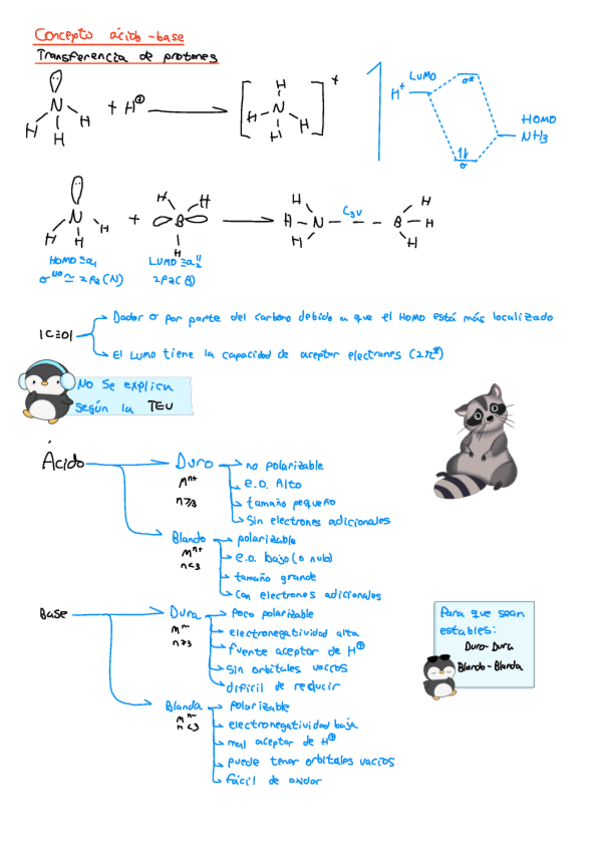 Concepto ácido-base
Transferencia de protones
N H H H + H⊕ → [H N H H H]+
H+ LUMO σ* HOMO NH3
1↓
σ
N H H H + H H B H → H H N C3v B H H H
HOMO ≡ a1 LUMO ≡ a2''
σ no ≃ 2pz (N) 2pz (B)
|C≡O|
Dador σ por parte del carbono debido a que el HOMO está más localizado
El LUMO tiene la capacidad de aceptar electrones (2π*)
No se explica
según la TEV
Ácido Duro no polarizable
M n+ e.o. Alto
n≥3 tamaño pequeño
Sin electrones adicionales
Blando polarizable
M n+ e.o. bajo (o nulo)
n<3 tamaño grande
Con electrones adicionales
Base Dura Poco polarizable
M n- electronegatividad alta
n≥3 fuente aceptor de H⊕
Sin orbitales vacios
dificil de reducir
Para que sean
estables:
Duro-Dura
Blando-Blanda
Blanda Polarizable
M n- electronegatividad baja
n<3 mal aceptor de H⊕
puede tener orbitales vacios
fácil de oxidar